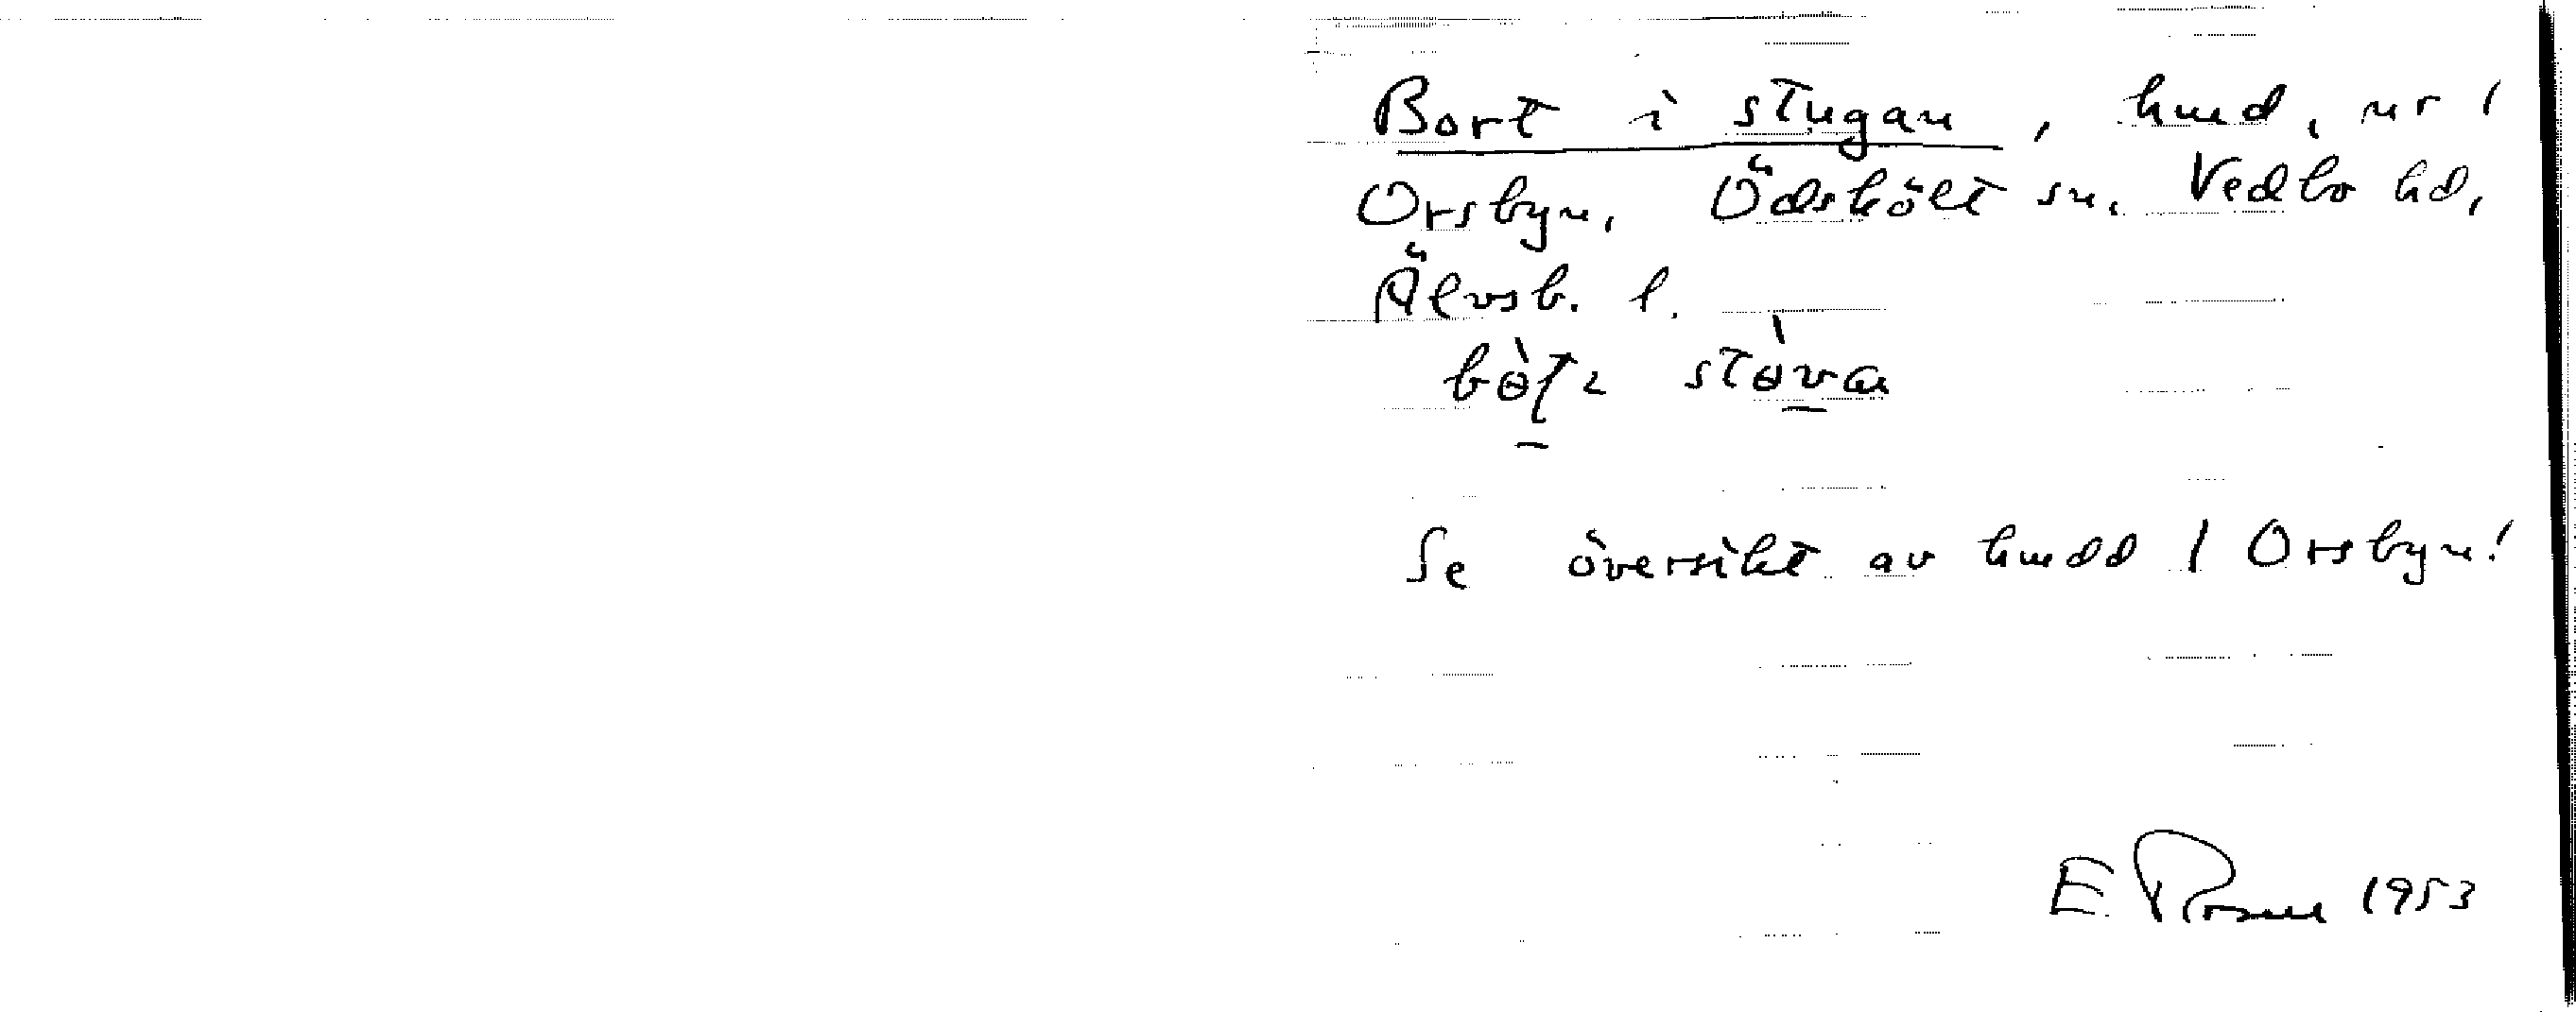 Bort i stugan, hmd, nr 1
Orsbyn, Ödskölt sn, Vedbo hd,
Älvsb. l.
stòva
Se översikt av hmdd 1 Orsbyn!
E. 1953